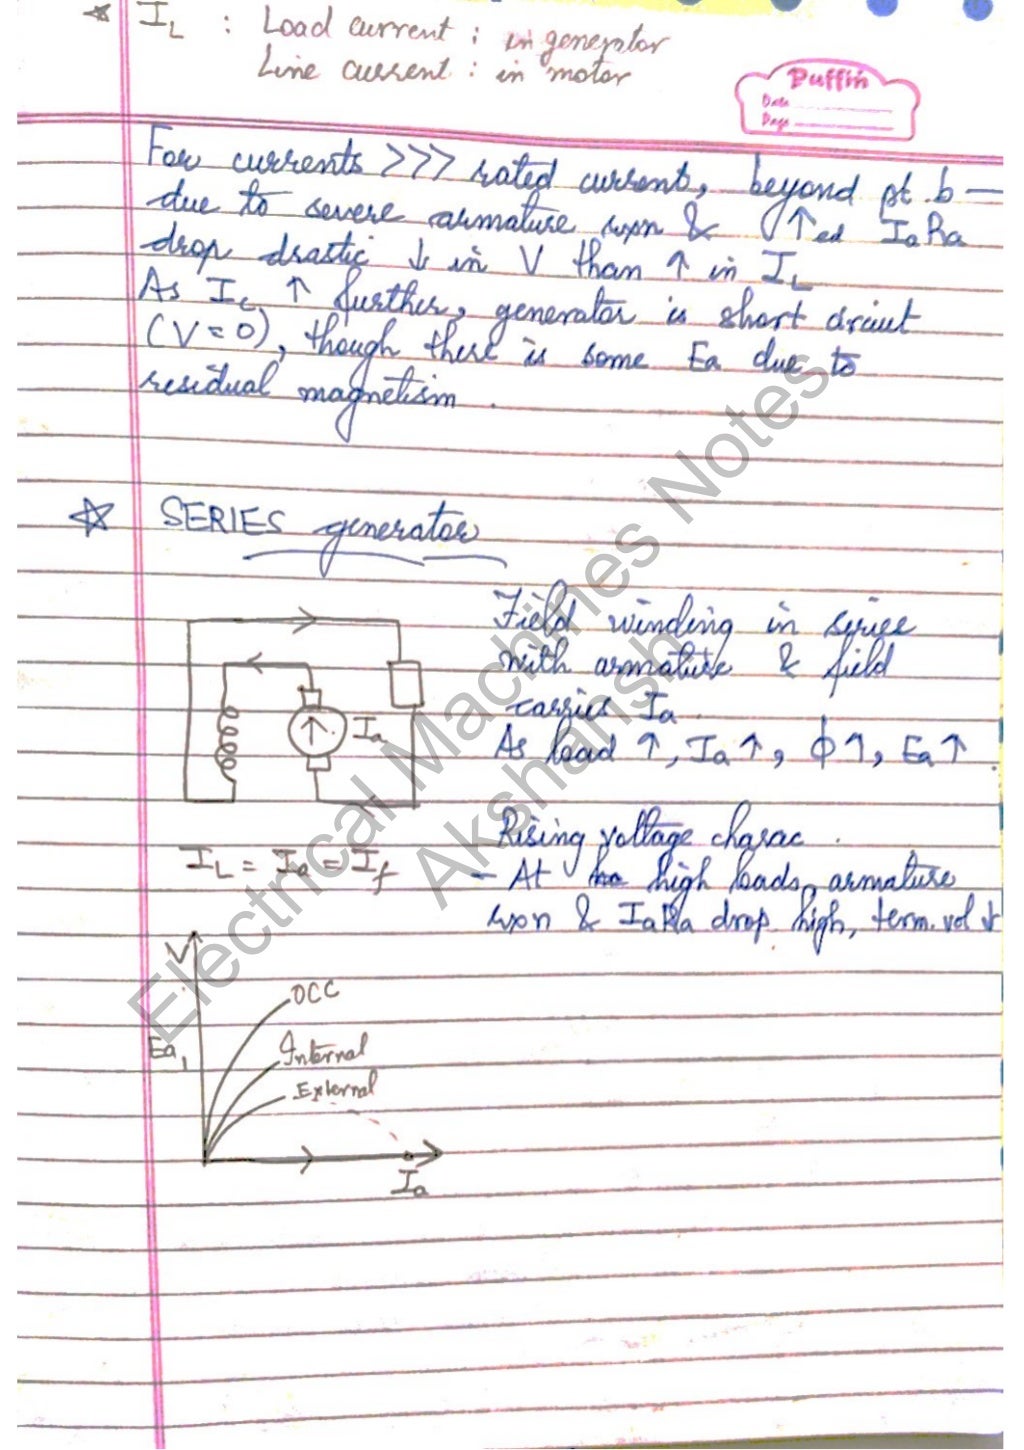 ☆ I_L : Load current : in generator
Line current : in motor
Puffin
Date
Page
For currents >>> rated current, beyond pt. b —
due to severe armature rxn & ↑ed IaRa
drop drastic ↓ in V than ↑ in I_L
As I_L ↑ further, generator is short circuit
(V = 0), though there is some Ea due to
residual magnetism.
☆ SERIES generator
Field winding in series
with armature & field
carries Ia.
As load ↑, Ia ↑, ϕ↑, Ea ↑.
Ia
I_L = Ia = I_f
Rising voltage charac.
- At high loads, armature
rxn & IaRa drop high, term. vol ↓
V
OCC
Ea,
Internal
External
Ia
Electrical Machines Notes
Akshansh